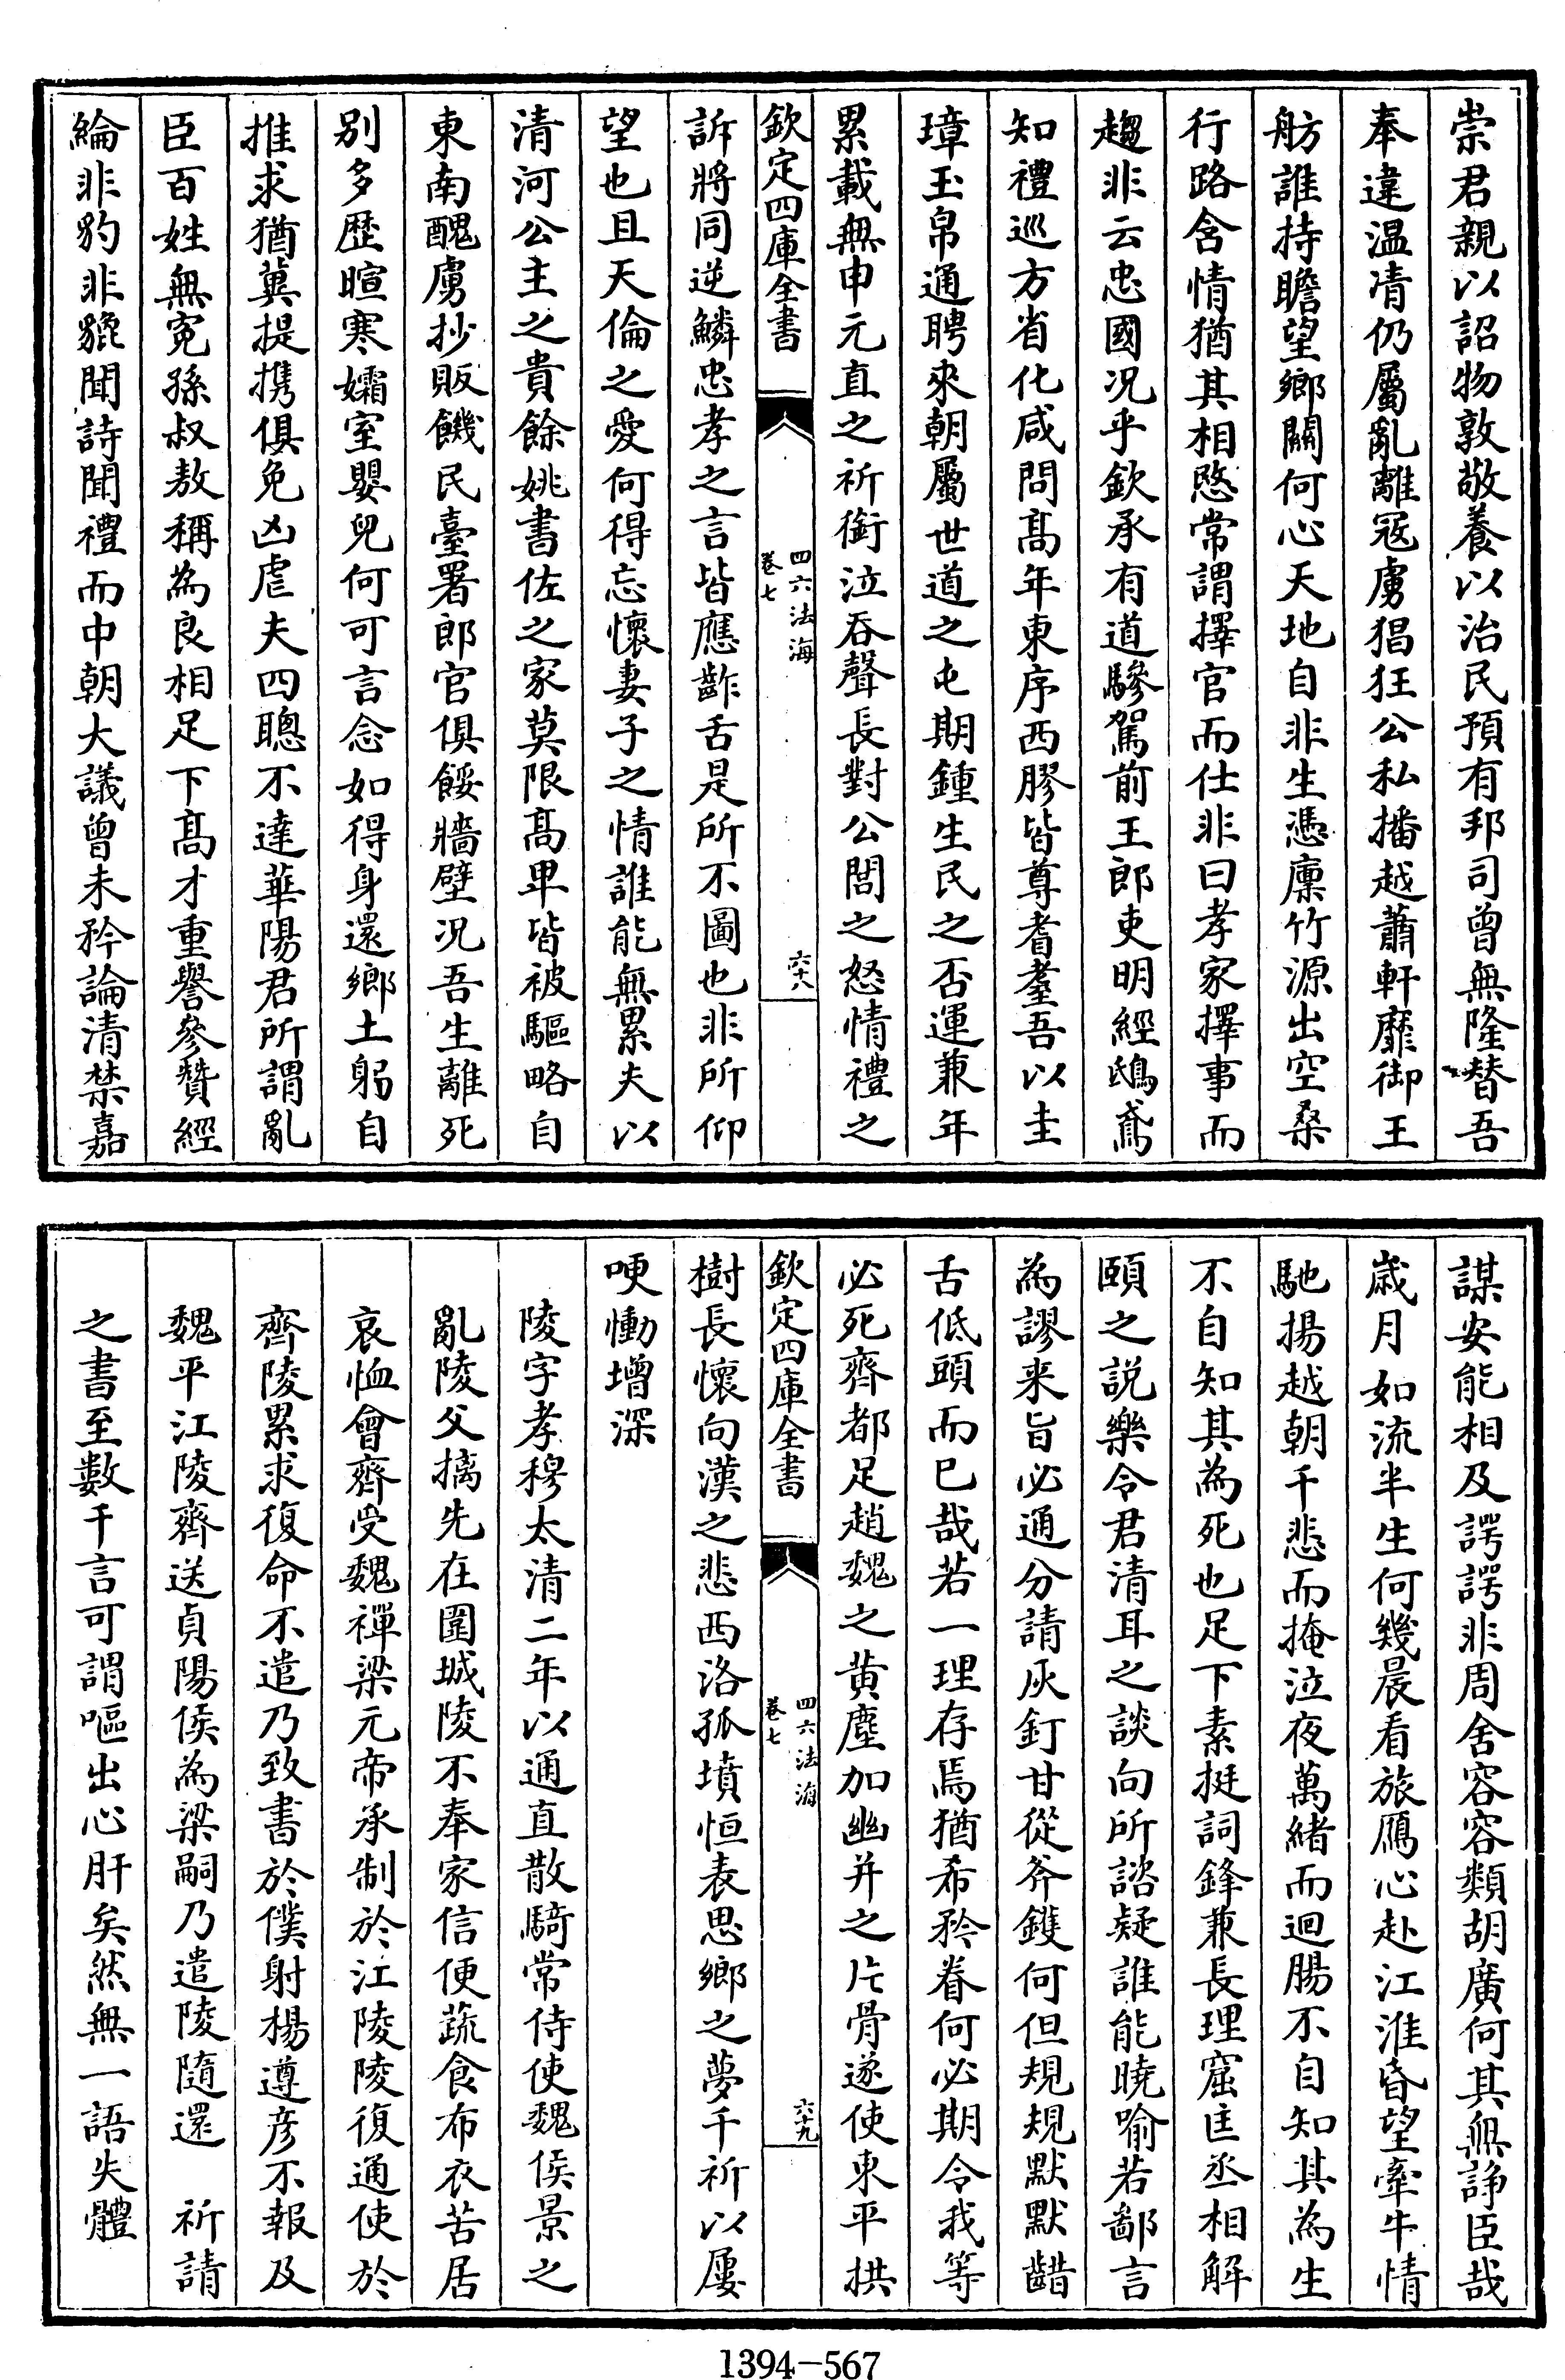 崇君親以詔物敦敬養以治民預有邦司曾無隆替吾
奉違温凊仍屬亂離冦虜猖狂公私播越蕭軒靡御王
舫誰持瞻望鄉關何心天地自非生憑廩竹源出空桑
行路含情猶其相愍常謂擇官而仕非曰孝家擇事而
趨非云忠國况乎欽承有道驂駕前王郎吏明經鴟鳶
知禮巡方省化咸問髙年東序西膠皆尊耆耋吾以圭
璋玉帛通聘來朝屬世道之屯期鍾生民之否運兼年
累載無申元直之祈銜泣吞聲長對公閭之怒情禮之
欽定四庫全書
四六法海
卷七
六十八
訴將同逆鱗忠孝之言皆應齚舌是所不圖也非所仰
望也且天倫之愛何得忘懷妻子之情誰能無累夫以
清河公主之貴餘姚書佐之家莫限髙卑皆被驅略自
東南醜虜抄販饑民臺署郎官俱餒牆壁况吾生離死
別多歴暄寒孀室嬰兒何可言念如得身還鄉土躬自
推求猶冀提携俱免凶虐夫四聰不達華陽君所謂亂
臣百姓無寃孫叔敖稱為良相足下髙才重譽參贊經
綸非豹非貔聞詩聞禮而中朝大議曾未矜論清禁嘉
謀安能相及諤諤非周舍容容類胡廣何其無諍臣哉
歳月如流半生何幾晨看旅鴈心赴江淮昏望牽牛情
馳揚越朝千悲而掩泣夜萬緒而迴腸不自知其為生
不自知其為死也足下素挺詞鋒兼長理窟匡丞相解
頤之説樂令君清耳之談向所諮疑誰能曉喻若鄙言
為謬来旨必通分請灰釘甘從斧鑊何但規規默默齰
舌低頭而已哉若一理存焉猶希矜眷何必期令我等
必死齊都足趙魏之黄塵加幽并之片骨遂使東平拱
欽定四庫全書
四六法海
卷七
六十九
樹長懷向漢之悲西洛孤墳恒表思鄉之夢千祈以屢
哽慟增深
陵字孝穆太清二年以通直散騎常侍使魏侯景之
亂陵父摛先在圍城陵不奉家信便蔬食布衣苦居
哀恤會齊受魏禪梁元帝承制於江陵陵復通使於
齊陵累求復命不遣乃致書於僕射楊遵彦不報及
魏平江陵齊送貞陽侯為梁嗣乃遣陵隨還 祈請
之書至數千言可謂嘔出心肝矣然無一語失體
1394-567